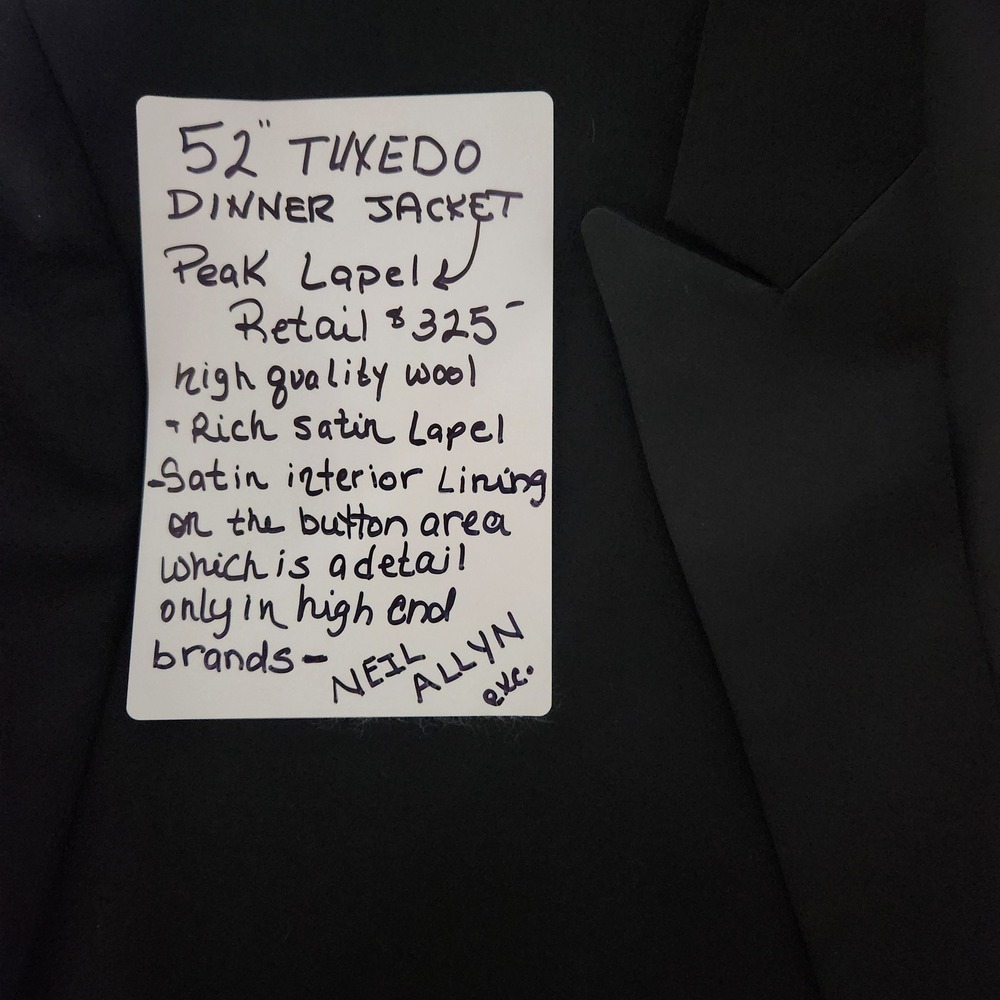 52" TUXEDO
DINNER JACKET
Peak Lapel
Retail $325-
high quality wool
- Rich satin Lapel
-Satin interior Lining
on the button area
which is a detail
only in high end
brands-
NEIL
ALLYN
exc.